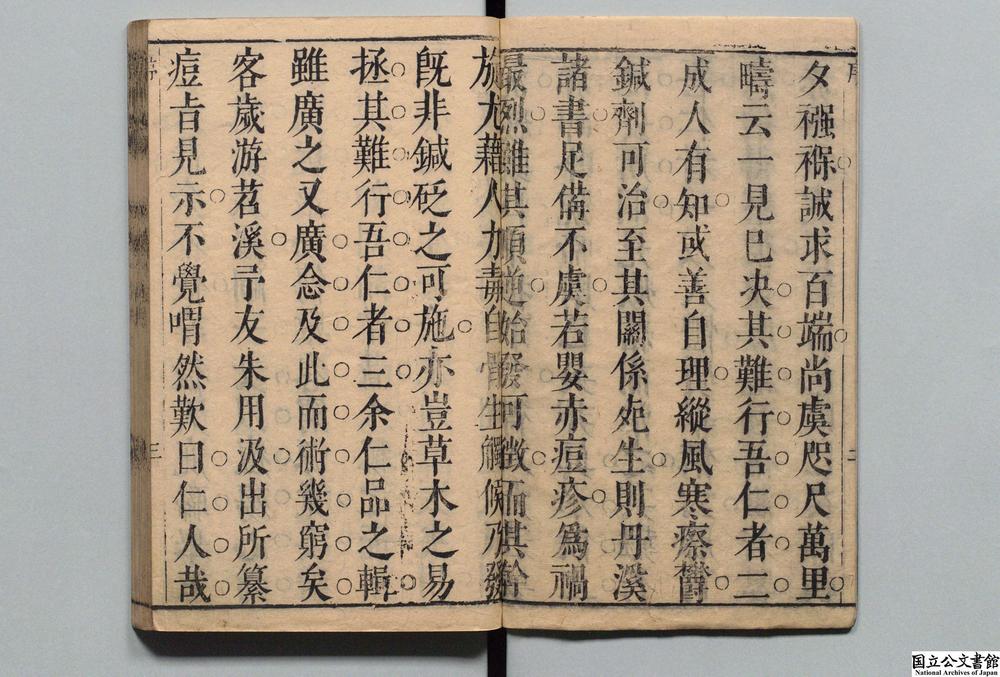 序
二
夕襁褓誠求百端尚虞咫尺萬里
疇云一見已决其難行吾仁者二
成人有知或善自理縱風寒瘵欝
鍼劑可治至其關係死生則丹溪
諸書足備不虞若嬰赤痘疹爲禍
最烈雖其順逆始發可徵而其幹
旋尤藉人力毒自骨生觸候乃發
旣非鍼砭之可施亦豈草木之易
拯其難行吾仁者三余仁品之輯
雖廣之又廣念及此而術幾窮矣
客歲游苕溪予友朱用汲出所纂
痘旨見示不覺喟然歎曰仁人哉
序
三
国立公文書館
National Archives of Japan